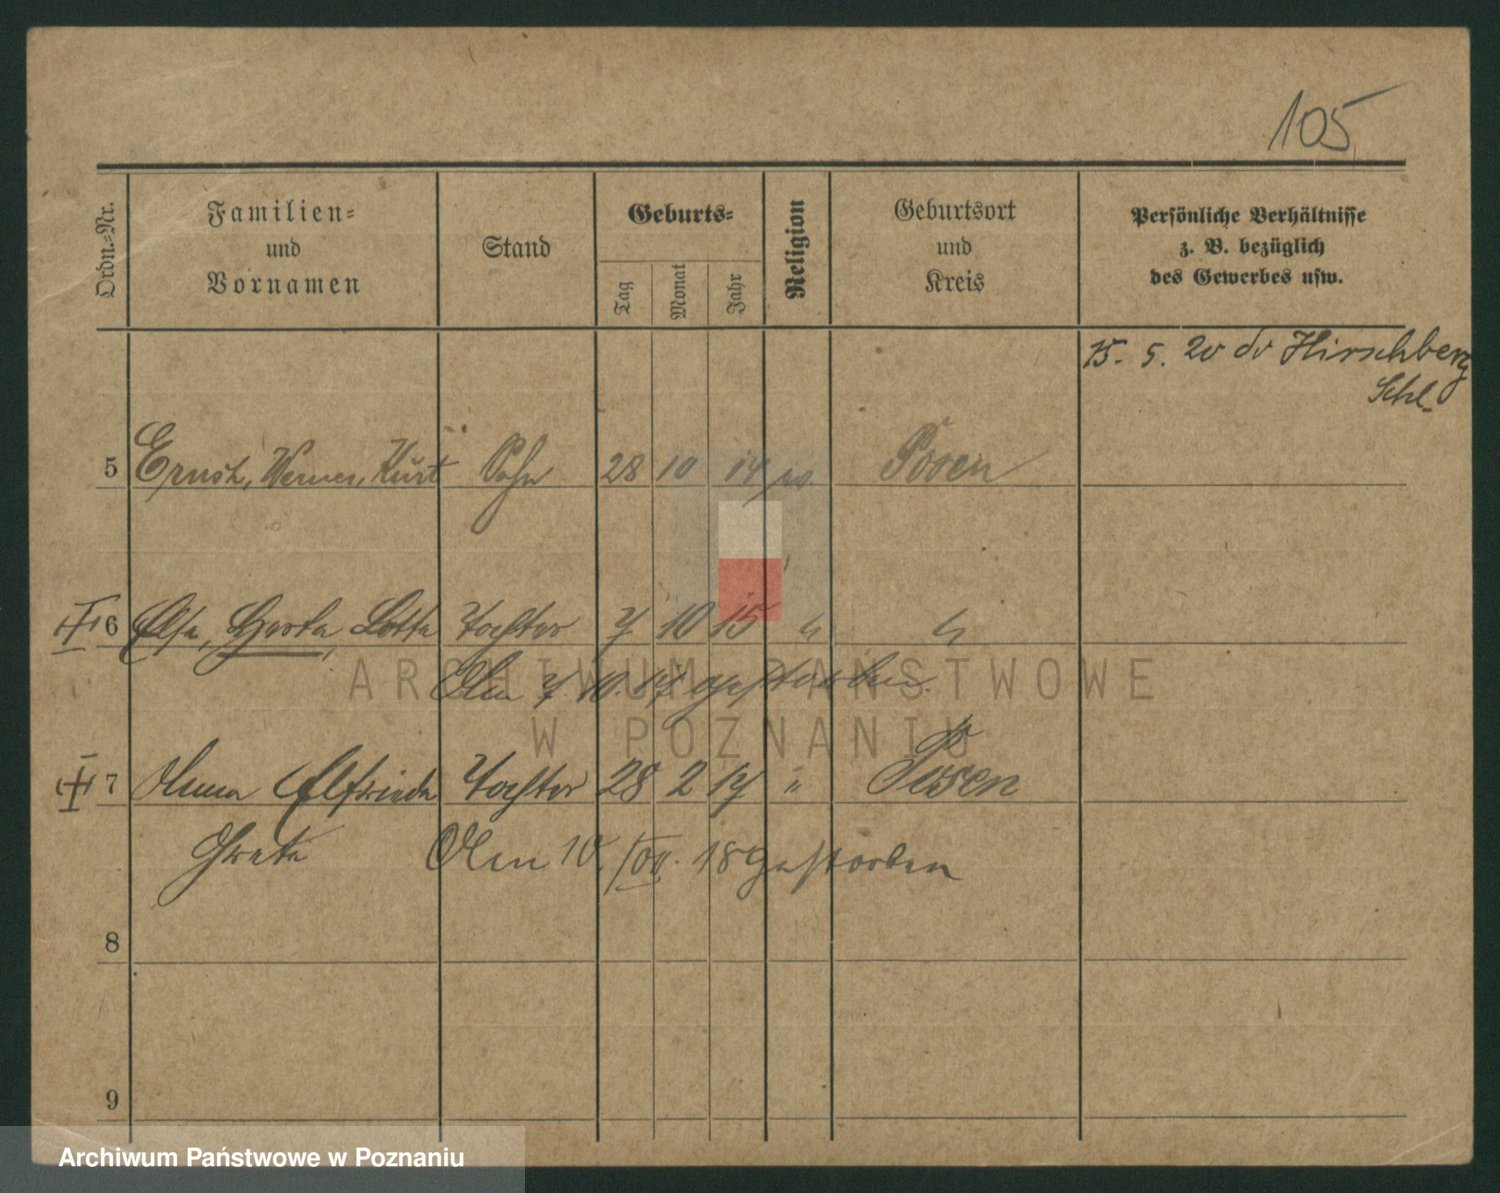 105
Ordn.-Nr.
Familien-
und
Vornamen
Stand
Geburts-
Tag
Monat
Jahr
Religion
Geburtsort
und
Kreis
Persönliche Verhältnisse
z. B. bezüglich
des Gewerbes usw.
15. 5. 20 Hirschberg
Schl.
5 Ernst, Werner, Kurt Sohn 28 10 14 Posen
6 Else, Herta, Lotte Tochter 7 10 15 "
gestorben.
7 Anna Elfriede Tochter 28 2 17 " Posen
Grete Am 10. 18 gestorben
8
9
ARCHIWUM PAŃSTWOWE
W POZNANIU
Archiwum Państwowe w Poznaniu